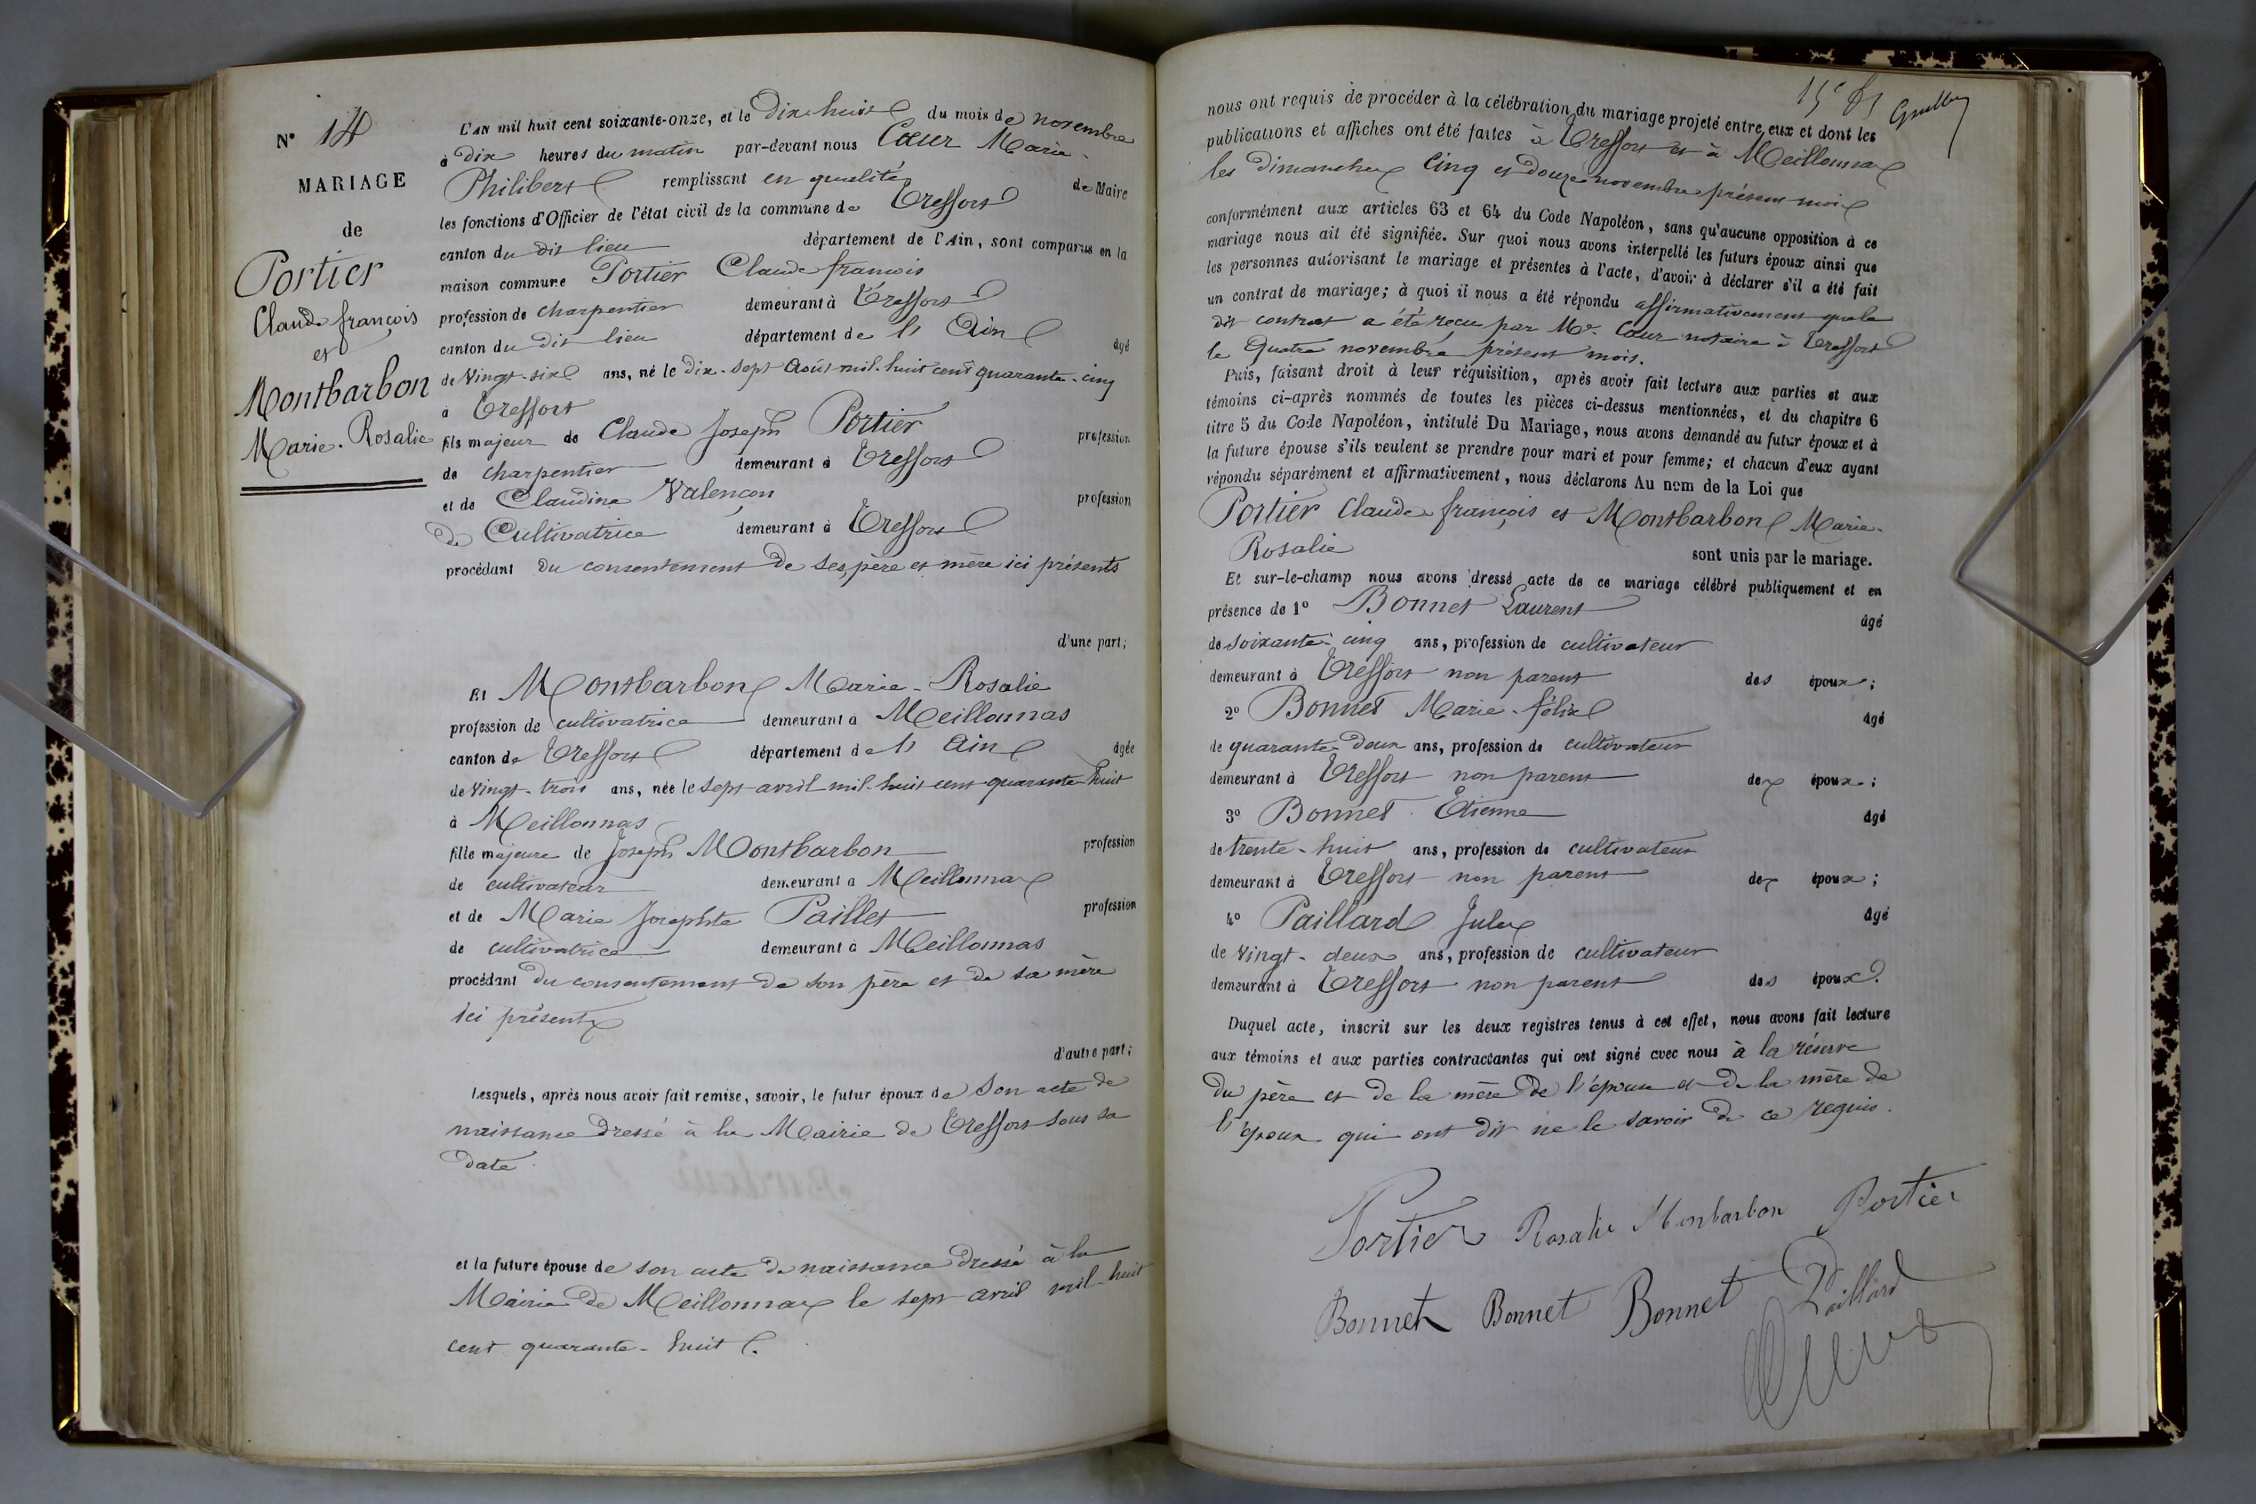 N° 14
MARIAGE
de
Portier
Claude françois
et
Montbarbon
Marie-Rosalie
L'AN mil huit cent soixante-onze, et le Dix-huit du mois de novembre
à dix heures du matin par-devant nous Cœur Marie-
Philibert remplissant en qualité de Maire
les fonctions d'Officier de l'état civil de la commune de Treffort
canton du dit lieu département de l'Ain, sont comparus en la
maison commune Portier Claude françois
profession de charpentier demeurant à Treffort
canton du dit lieu département de l'Ain âgé
de Vingt-six ans, né le dix-sept Août mil-huit cent quarante-cinq
à Treffort
fils majeur de Claude Joseph Portier profession
de charpentier demeurant à Treffort
et de Claudine Valençon profession
de Cultivatrice demeurant à Treffort
procédant du consentement de ses père et mère ici présents
d'une part;
Et Montbarbon Marie-Rosalie
profession de cultivatrice demeurant à Meillonnas
canton de Treffort département de l'Ain âgée
de Vingt-trois ans, née le sept avril mil-huit cent quarante-huit
à Meillonnas
fille majeure de Joseph Montbarbon profession
de cultivateur demeurant à Meillonnas
et de Marie Josephte Paillet profession
de cultivatrice demeurant à Meillonnas
procédant du consentement de son père et de sa mère
ici présents
d'autre part;
Lesquels, après nous avoir fait remise, savoir, le futur époux de son acte de
naissance dressé à la Mairie de Treffort sous sa
date
et la future épouse de son acte de naissance dressé à la
Mairie de Meillonnas le sept avril mil-huit
cent quarante-huit.
nous ont requis de procéder à la célébration du mariage projeté entre eux et dont les
publications et affiches ont été faites à Treffort et à Meillonnas
les dimanches Cinq et Douze novembre présent mois
conformément aux articles 63 et 64 du Code Napoléon, sans qu'aucune opposition à ce
mariage nous ait été signifiée. Sur quoi nous avons interpellé les futurs époux ainsi que
les personnes autorisant le mariage et présentes à l'acte, d'avoir à déclarer s'il a été fait
un contrat de mariage; à quoi il nous a été répondu affirmativement que le
dit contrat a été reçu par Me. Cœur notaire à Treffort
le Quatre novembre présent mois.
Puis, faisant droit à leur réquisition, après avoir fait lecture aux parties et aux
témoins ci-après nommés de toutes les pièces ci-dessus mentionnées, et du chapitre 6
titre 5 du Code Napoléon, intitulé Du Mariage, nous avons demandé au futur époux et à
la future épouse s'ils veulent se prendre pour mari et pour femme; et chacun d'eux ayant
répondu séparément et affirmativement, nous déclarons Au nom de la Loi que
Portier Claude françois et Montbarbon Marie-
Rosalie sont unis par le mariage.
Et sur-le-champ nous avons dressé acte de ce mariage célébré publiquement et en
présence de 1° Bonnet Laurent âgé
de soixante-cinq ans, profession de cultivateur
demeurant à Treffort non parent des époux;
2° Bonnet Marie-félix âgé
de quarante-deux ans, profession de cultivateur
demeurant à Treffort non parent des époux;
3° Bonnet Étienne âgé
de trente-huit ans, profession de cultivateur
demeurant à Treffort non parent des époux;
4° Paillard Jules âgé
de Vingt-deux ans, profession de cultivateur
demeurant à Treffort non parent des époux.
Duquel acte, inscrit sur les deux registres tenus à cet effet, nous avons fait lecture
aux témoins et aux parties contractantes qui ont signé avec nous à la réserve
du père et de la mère de l'épouse et de la mère de
l'époux qui ont dit ne le savoir de ce requis.
Portier Rosalie Monbarbon Portier
Bonnet Bonnet Bonnet Paillard
Cœur